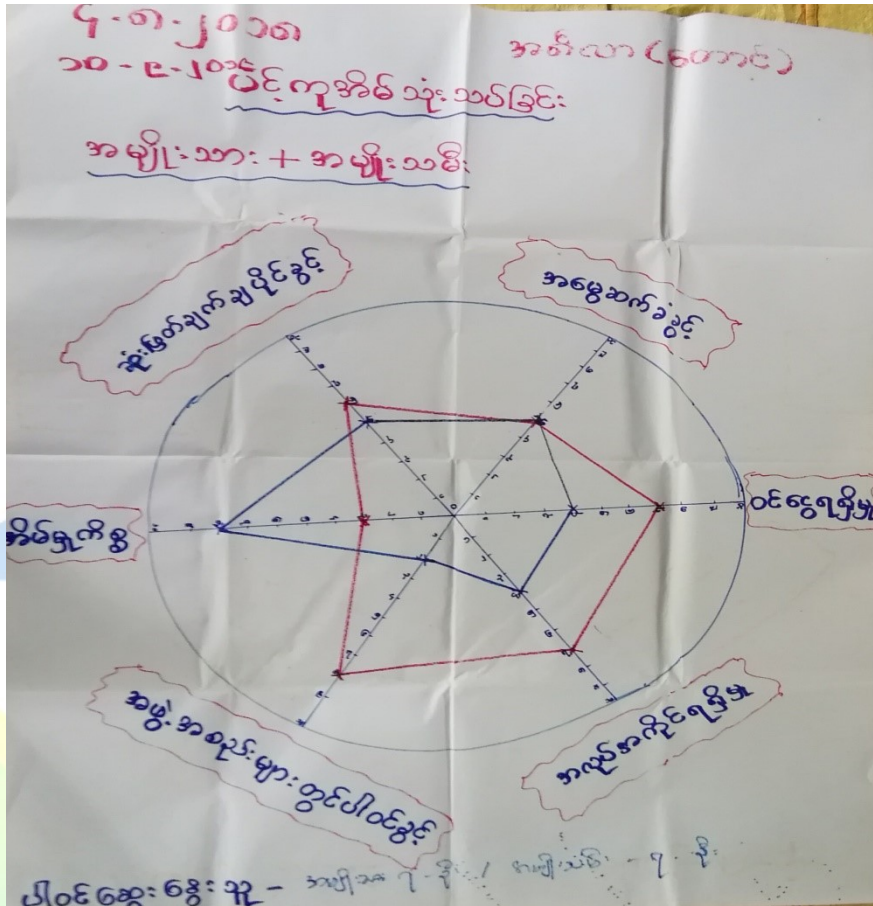 ၄.၈.၂၀၁၈
အင်္တီလာ (တောင်)
၁၀-၉-၂၀၁၈
ပင့်ကူအိမ်သုံးသပ်ခြင်း
အမျိုးသား + အမျိုးသမီး
ဆုံးဖြတ်ချက်ချပိုင်ခွင့်
အမွေဆက်ခံခွင့်
ဝင်ငွေရရှိမှု
အိမ်မှုကိစ္စ
အဖွဲ့အစည်းများတွင်ပါဝင်ခွင့်
အလုပ်အကိုင်ရရှိမှု
ပါဝင်ဆွေးနွေးသူ - အမျိုးသား ၇-ဦး / အမျိုးသမီး - ၇-ဦး